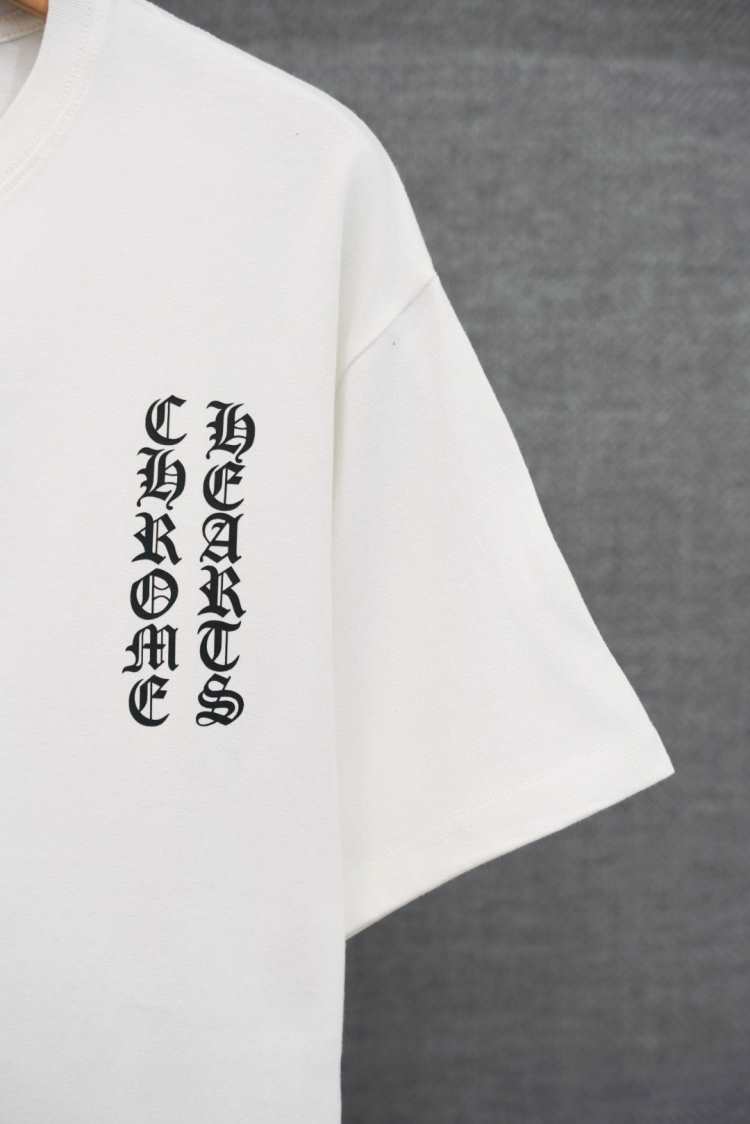 CHROME
HEARTS